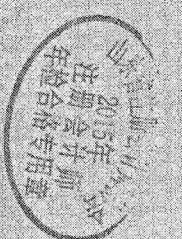 山东省
2015年
注册会计师
年检合格专用章